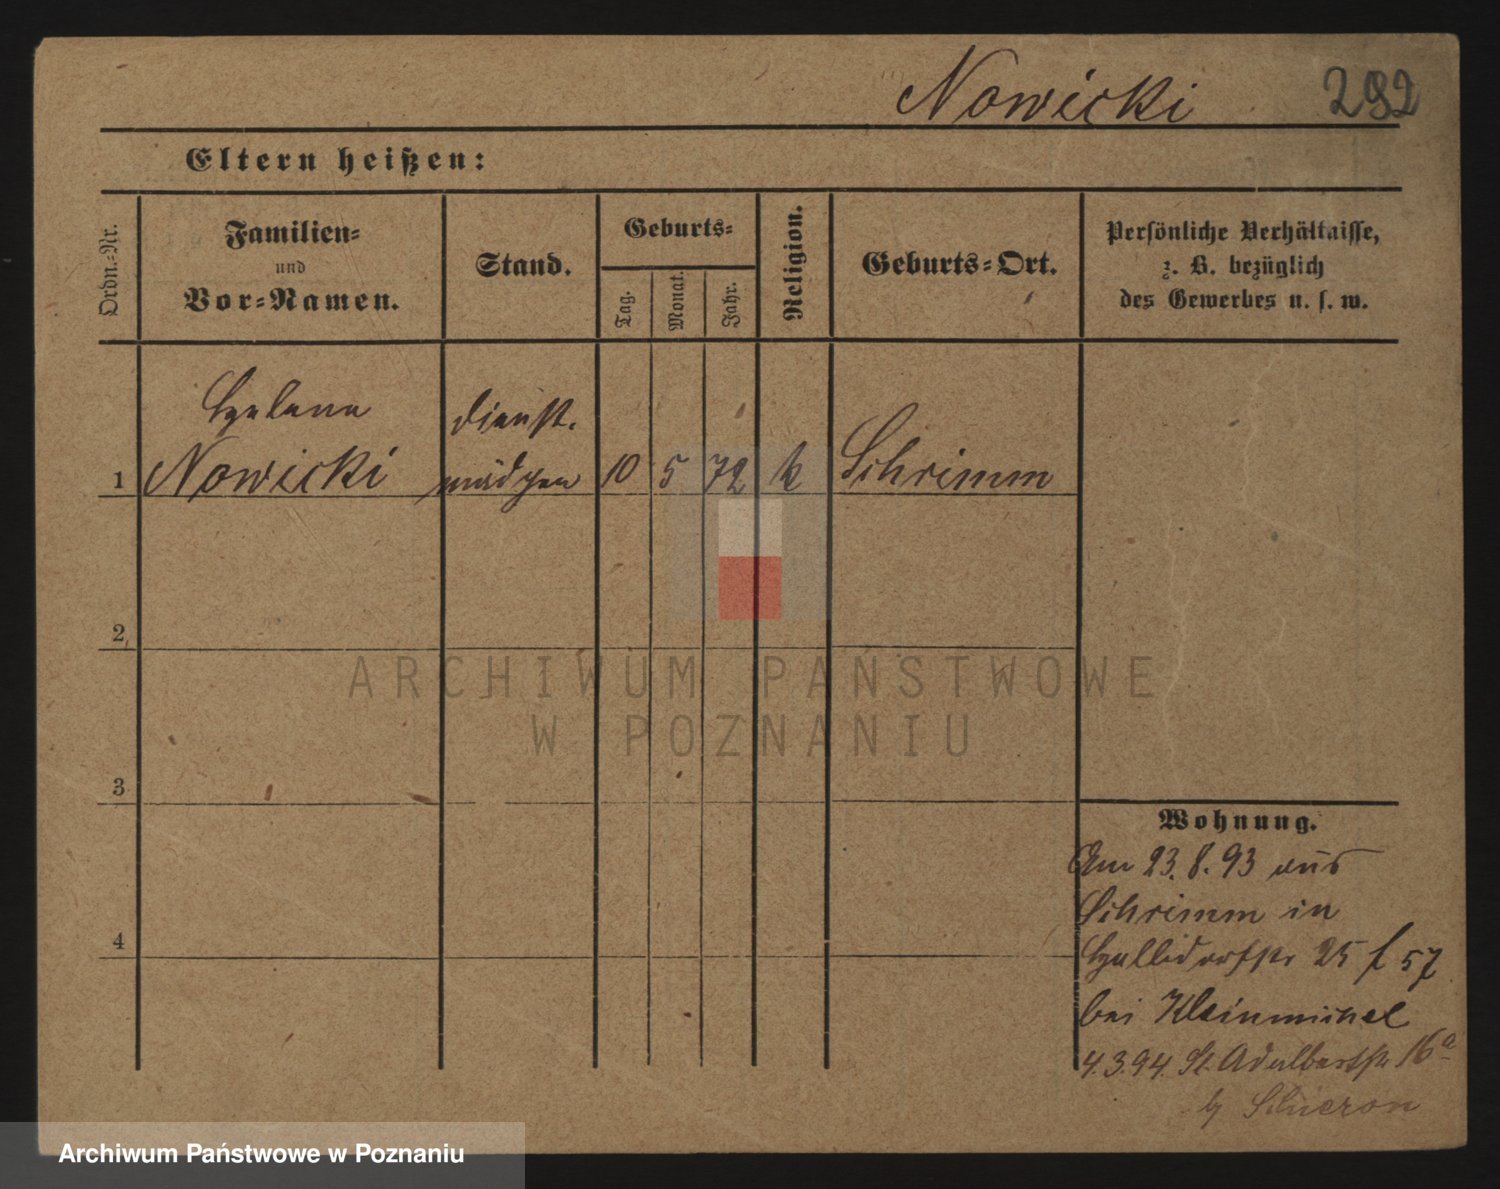 Nowicki 292
Eltern heißen:
Ordn.-Nr.
Familien-
und
Vor-Namen.
Stand.
Geburts-
Tag.
Monat.
Jahr.
Religion.
Geburts-Ort.
Persönliche Verhältnisse,
z. B. bezüglich
des Gewerbes u. s. w.
Helena
Nowicki
dienst.
mädchen
1
10 5 72 k Schrimm
2
3
4
Wohnung.
Am 23.8.93 aus
Schrimm in
Halbdorfstr 25 f 57
bei Kleinmichel
4.3.94. St. Adalbertstr 16a
ARCHIWUM PAŃSTWOWE
W POZNANIU
Archiwum Państwowe w Poznaniu